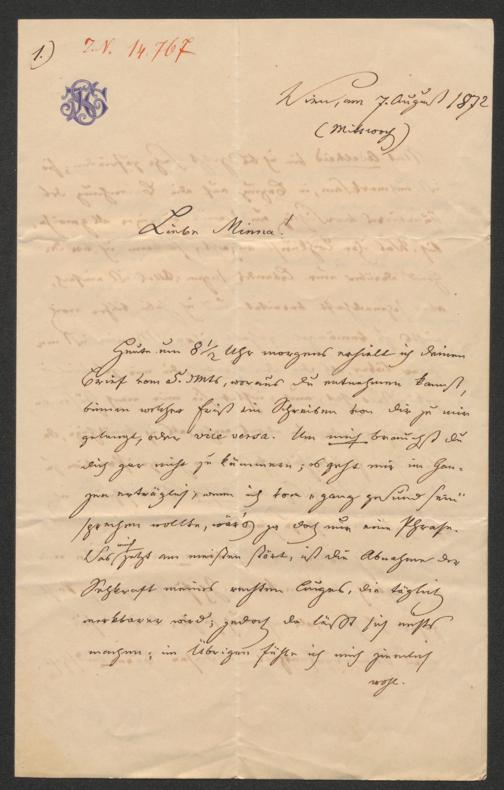 1.) I.N. 14.767
Wien, am 7. August 1872
(Mittwoch)
Liebe Minna!
Heute um 8 1/2 Uhr morgens erhielt ich deinen
Brief vom 5. dMts, woraus du entnehmen kannst,
binnen welcher Frist ein Schreiben von dir zu mir
gelangt, oder vice versa. Um mich brauchst du
dich gar nicht zu kümmern; es geht mir im Gan-
zen erträglich; wenn ich von „ganz gesund sein“
sprechen wollte, wär's ja doch nur eine Phrase.
Was mich jetzt am meisten stört, ist die Abnahme der
Sehkraft meines rechten Auges, die täglich
merkbarer wird; jedoch da läßt sich nichts
machen; im Übrigen fühle ich mich ziemlich
wohl.